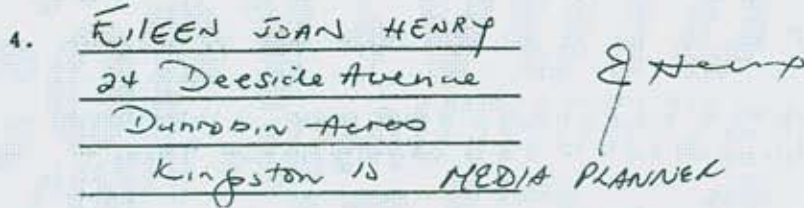 4. EILEEN JOAN HENRY
24 Deeside Avenue
Dunrobin Acres
E Henry
Kingston 10 MEDIA PLANNER